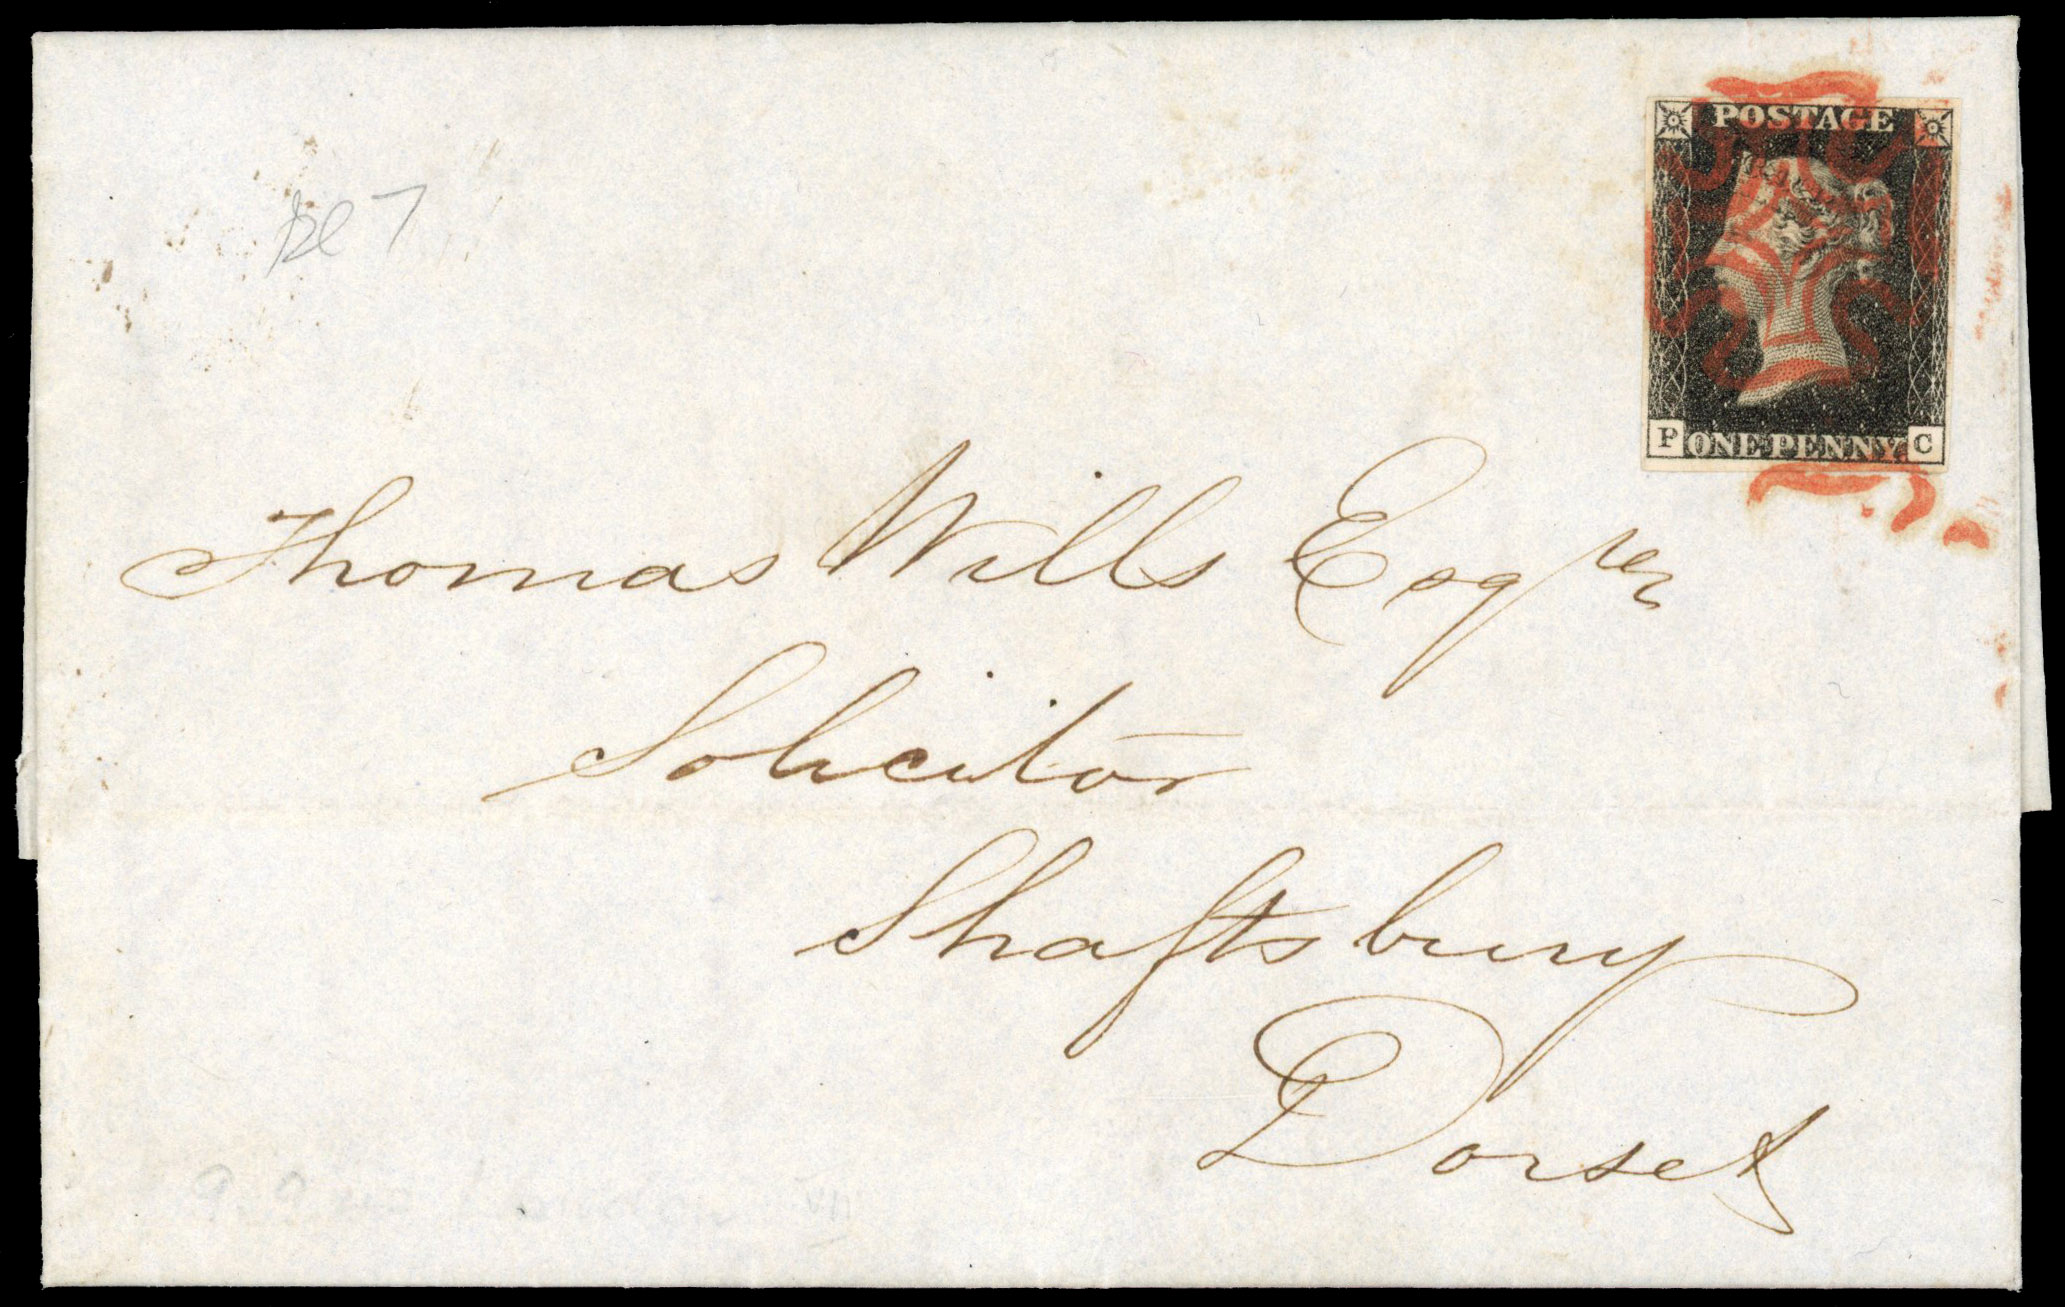 Pl 7
POSTAGE
P ONE PENNY C
Thomas Wills Esqre
Solicitor
Shaftsbury
Dorset